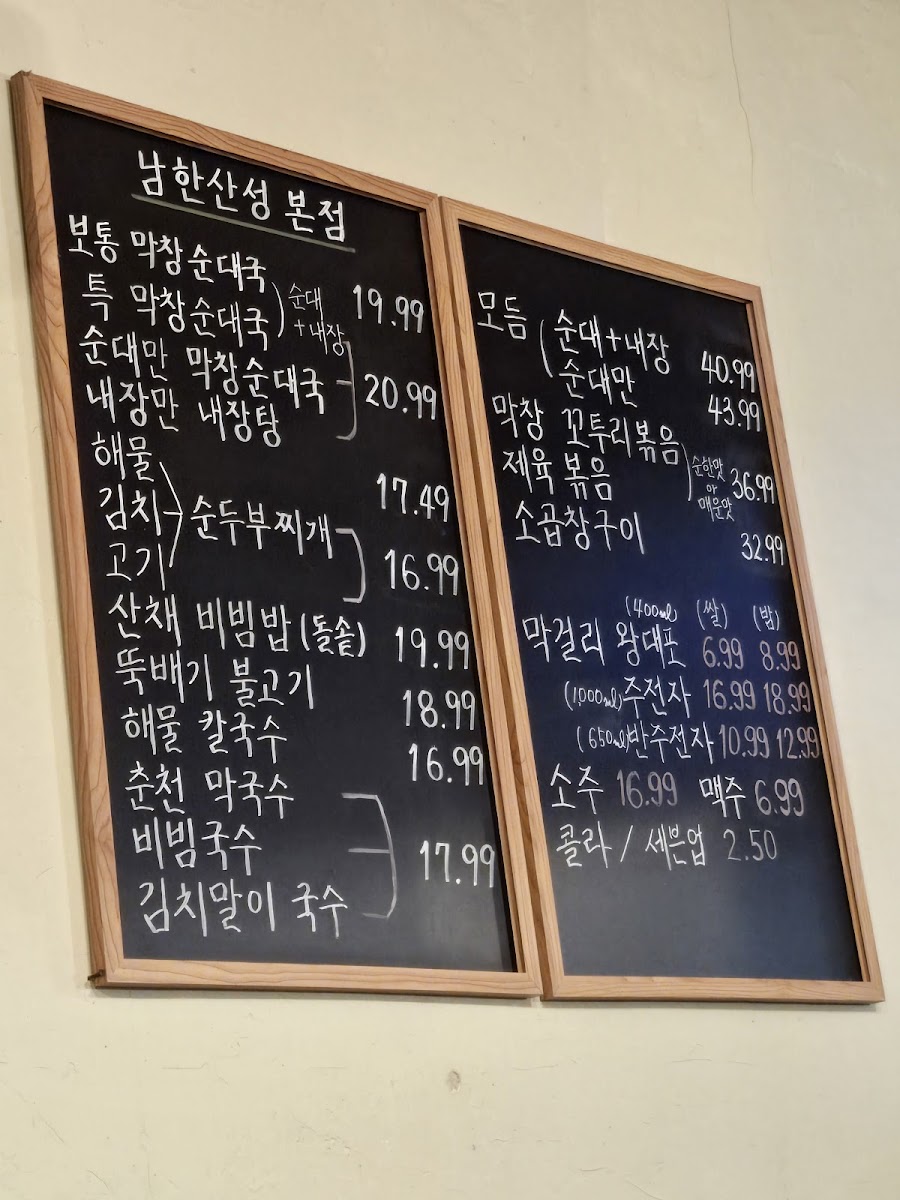 남한산성 본점
보통 막창순대국
특 막창순대국 ) 순대 19.99
+내장
순대만 막창순대국
내장만 내장탕 ] 20.99
해물 17.49
김치 순두부찌개
고기 16.99
산채 비빔밥 (돌솥) 19.99
뚝배기 불고기 18.99
해물 칼국수 16.99
춘천 막국수
비빔국수 17.99
김치말이 국수
모듬 ( 순대+내장 40.99
순대만 43.99
막창 꼬투리볶음
제육 볶음 ) 순한맛 or 매운맛 36.99
소곱창구이 32.99
(400ml) (쌀) (밤)
막걸리 왕대포 6.99 8.99
(1,000ml) 주전자 16.99 18.99
(650ml) 반주전자 10.99 12.99
소주 16.99 맥주 6.99
콜라 / 세븐업 2.50